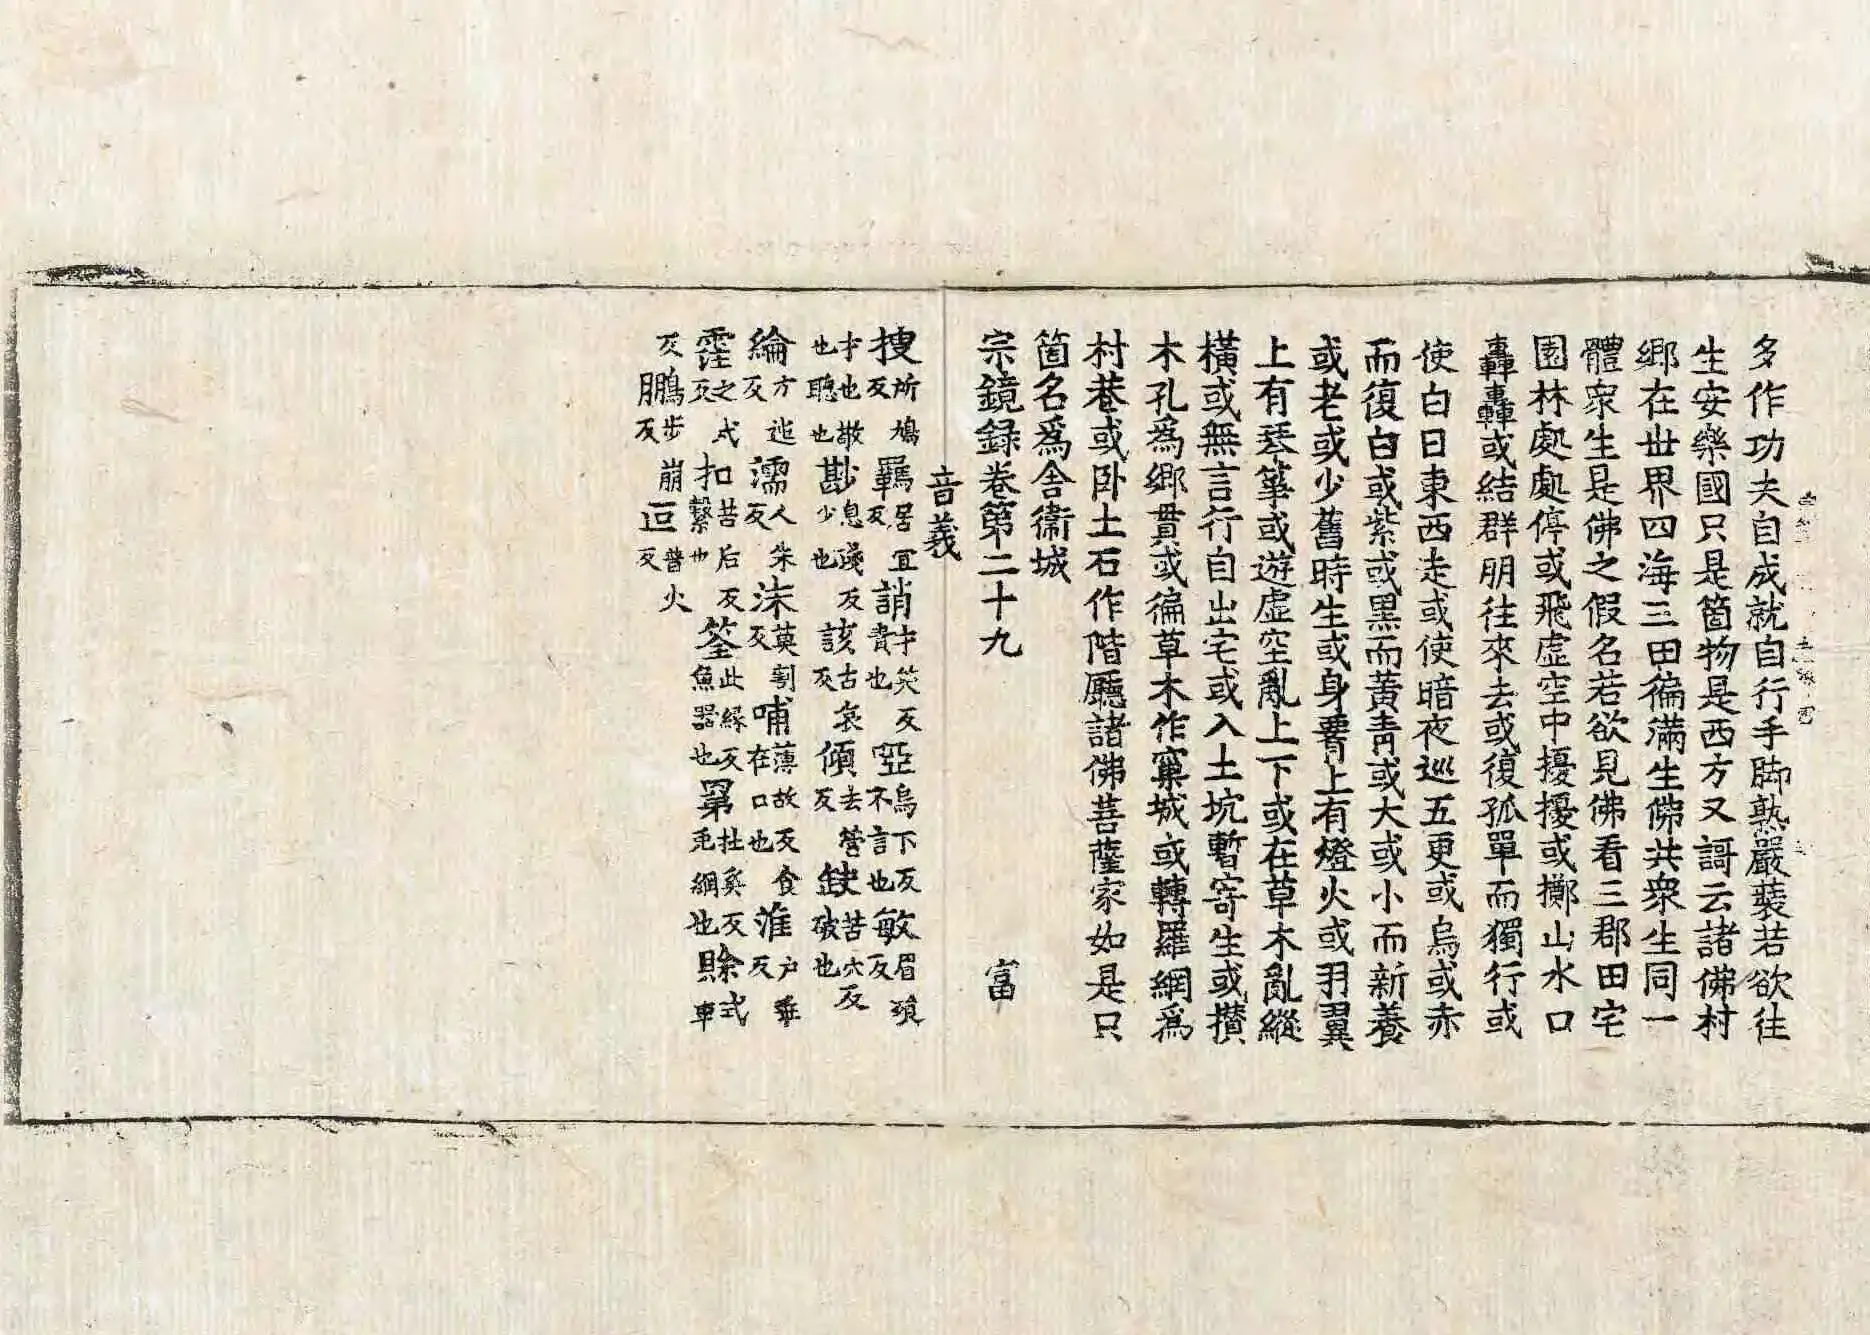 多作功夫自成就自行手脚熟嚴裝若欲往
生安樂國只是箇物是西方又謌云諸佛村
鄉在世界四海三田徧滿生佛共衆生同一
體衆生是佛之假名若欲見佛看三郡田宅
園林處處停或飛虛空中擾擾或擲山水口
轟轟或結群朋往來去或復孤單而獨行或
使白日東西走或使暗夜巡五更或烏或赤
而復白或紫或黑而黃青或大或小而新養
或老或少舊時生或身𦝫上有燈火或羽翼
上有琴箏或遊虛空亂上下或在草木亂縱
橫或無言行自出宅或入土坑暫寄生或攢
木孔爲鄉貫或徧草木作窠城或轉羅網爲
村巷或卧土石作階廳諸佛菩薩家如是只
箇名爲舍衞城
宗鏡録卷第二十九 富
音義
搜所鳩反羈居宜反誚才笑反責也啞烏下反不言也敏眉殞反
才也敢也聰也尠息淺反少也該古哀反傾去營反缺苦穴反破也
綸方迆反濡人朱反沫莫割反哺薄故反食在口也淮户乖反
霔之戍反扣苦后反擊也筌此縁反魚器也罤杜奚反兎網也賖式車
反鵬步崩反叵普火反